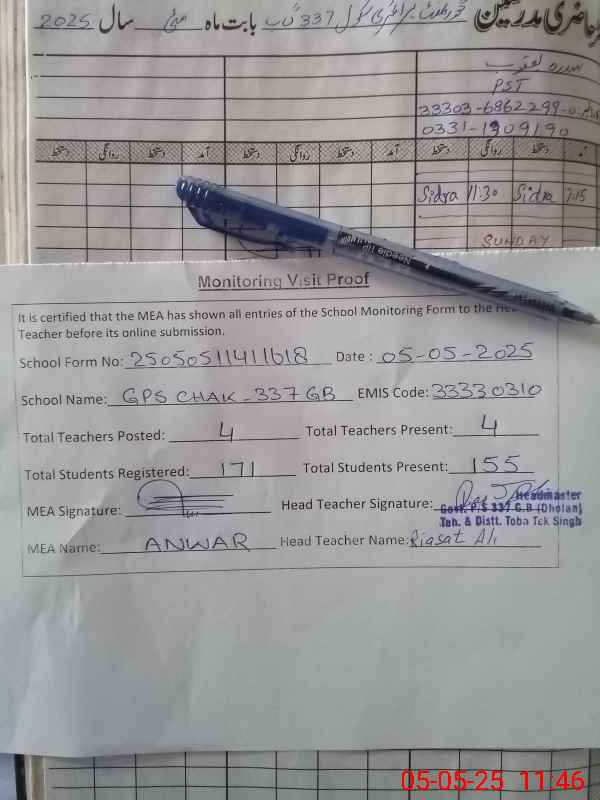 حاضری مدرسین گورنمنٹ پرائمری سکول 337 گ ب بابت ماہ مئی سال 2025
سدرہ یعقوب
PST
33303-6862299-0
0331-1909190
دستخط روانگی دستخط آمد دستخط روانگی دستخط آمد دستخط روانگی دستخط آمد
Sidra 11:30 Sidra 7:15
SUNDAY
Needle tip
Monitoring Visit Proof
It is certified that the MEA has shown all entries of the School Monitoring Form to the Head
Teacher before its online submission.
School Form No: 25050511411618 Date : 05-05-2025
School Name: GPS CHAK-337 GB EMIS Code: 33330310
Total Teachers Posted: 4 Total Teachers Present: 4
Total Students Registered: 171 Total Students Present: 155
MEA Signature: Head Teacher Signature:
Headmaster
Govt. P/S 337 G.B (Dholan)
Teh. & Distt. Toba Tek Singh
MEA Name: ANWAR Head Teacher Name: Riasat Ali
05-05-25 11:46